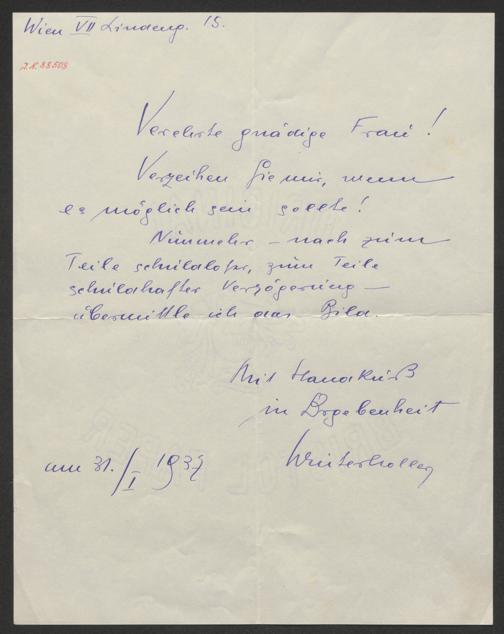 Wien VII Lindeng. 15.
J.N. 88508
Verehrte gnädige Frau!
Verzeihen Sie mir, wenn
es möglich sein sollte!
Nunmehr – nach zum
Teile schuldloser, zum Teile
schuldhafter Verzögerung –
übermittle ich das Bild.
Mit Handkuß
in Ergebenheit
am 31./I 1937